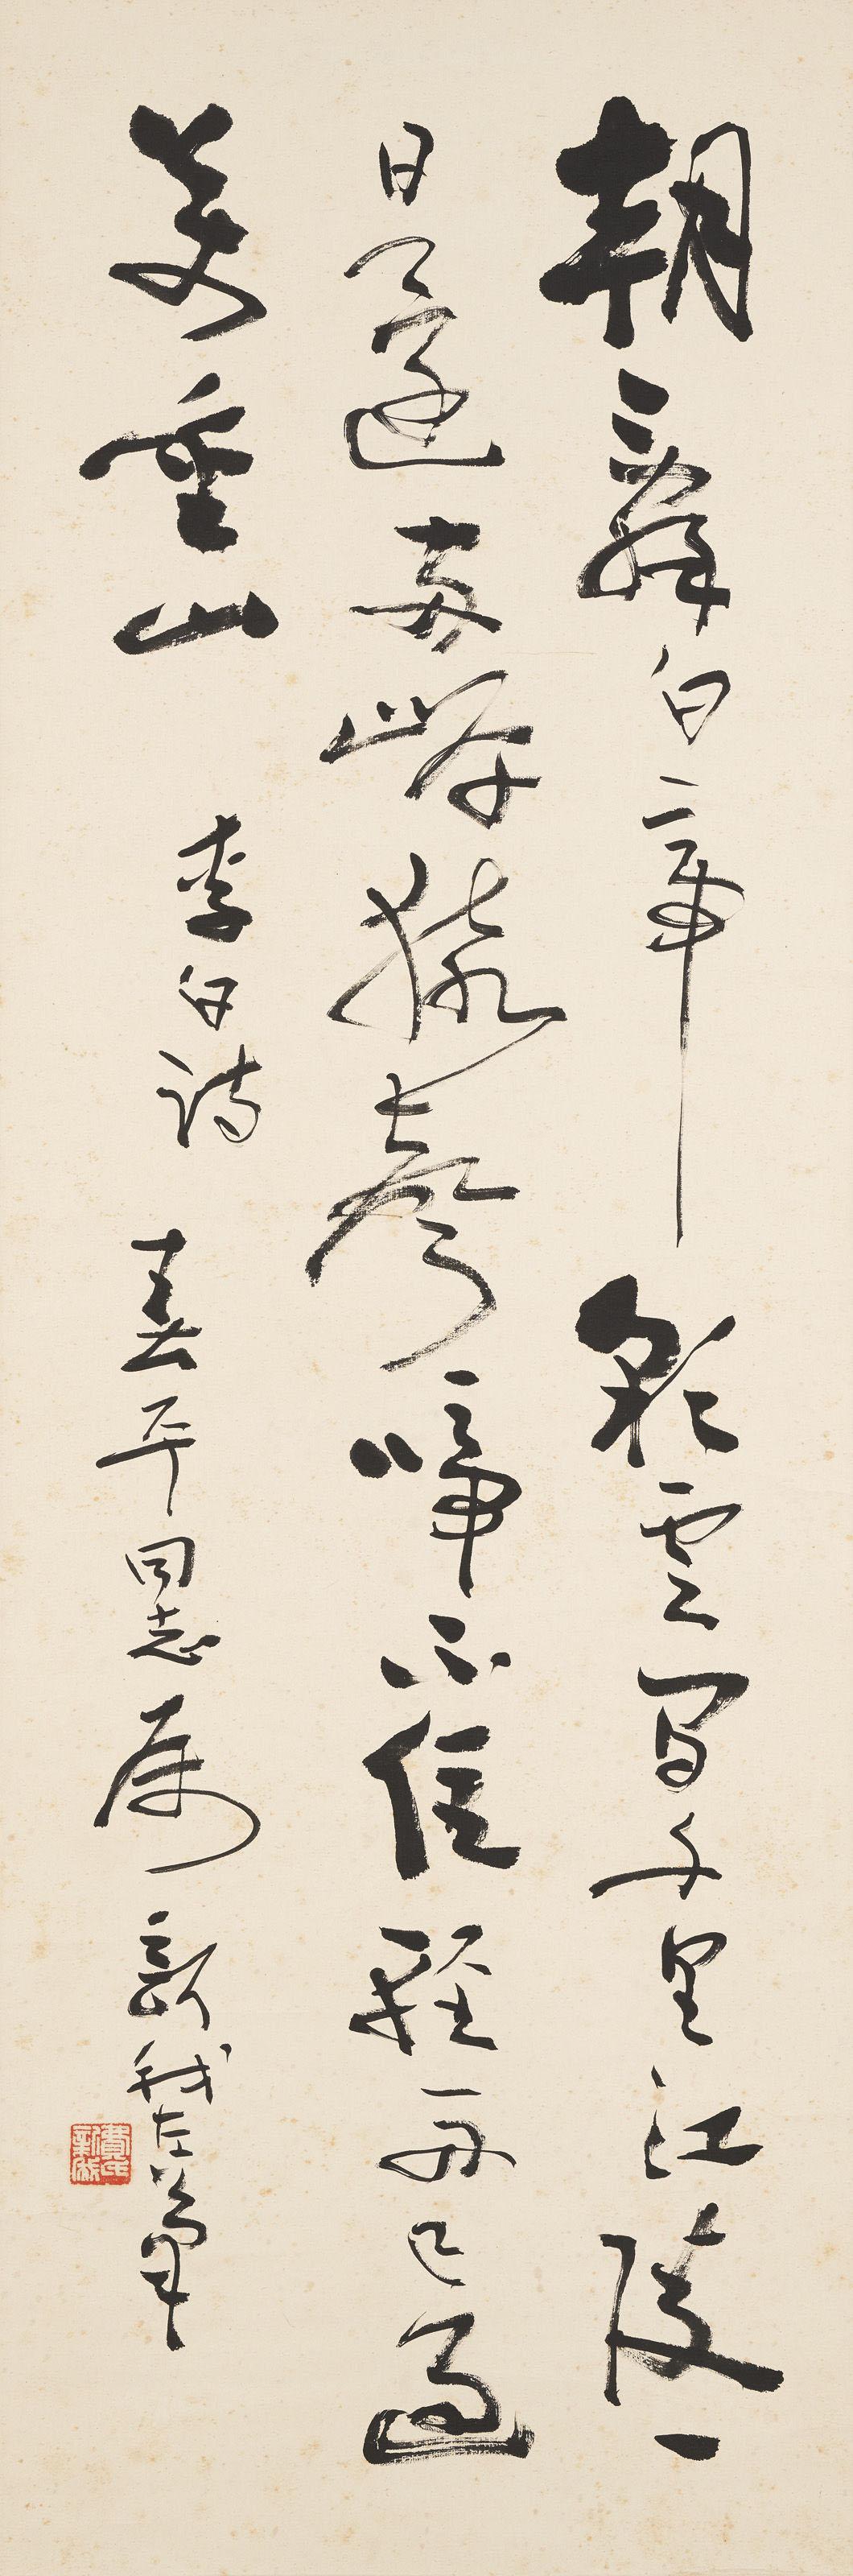 朝辭白帝彩雲間千里江陵一
日還兩岸猿聲啼不住輕舟已過
萬重山 李白詩 喜平同志属 新我左筆
費氏新我